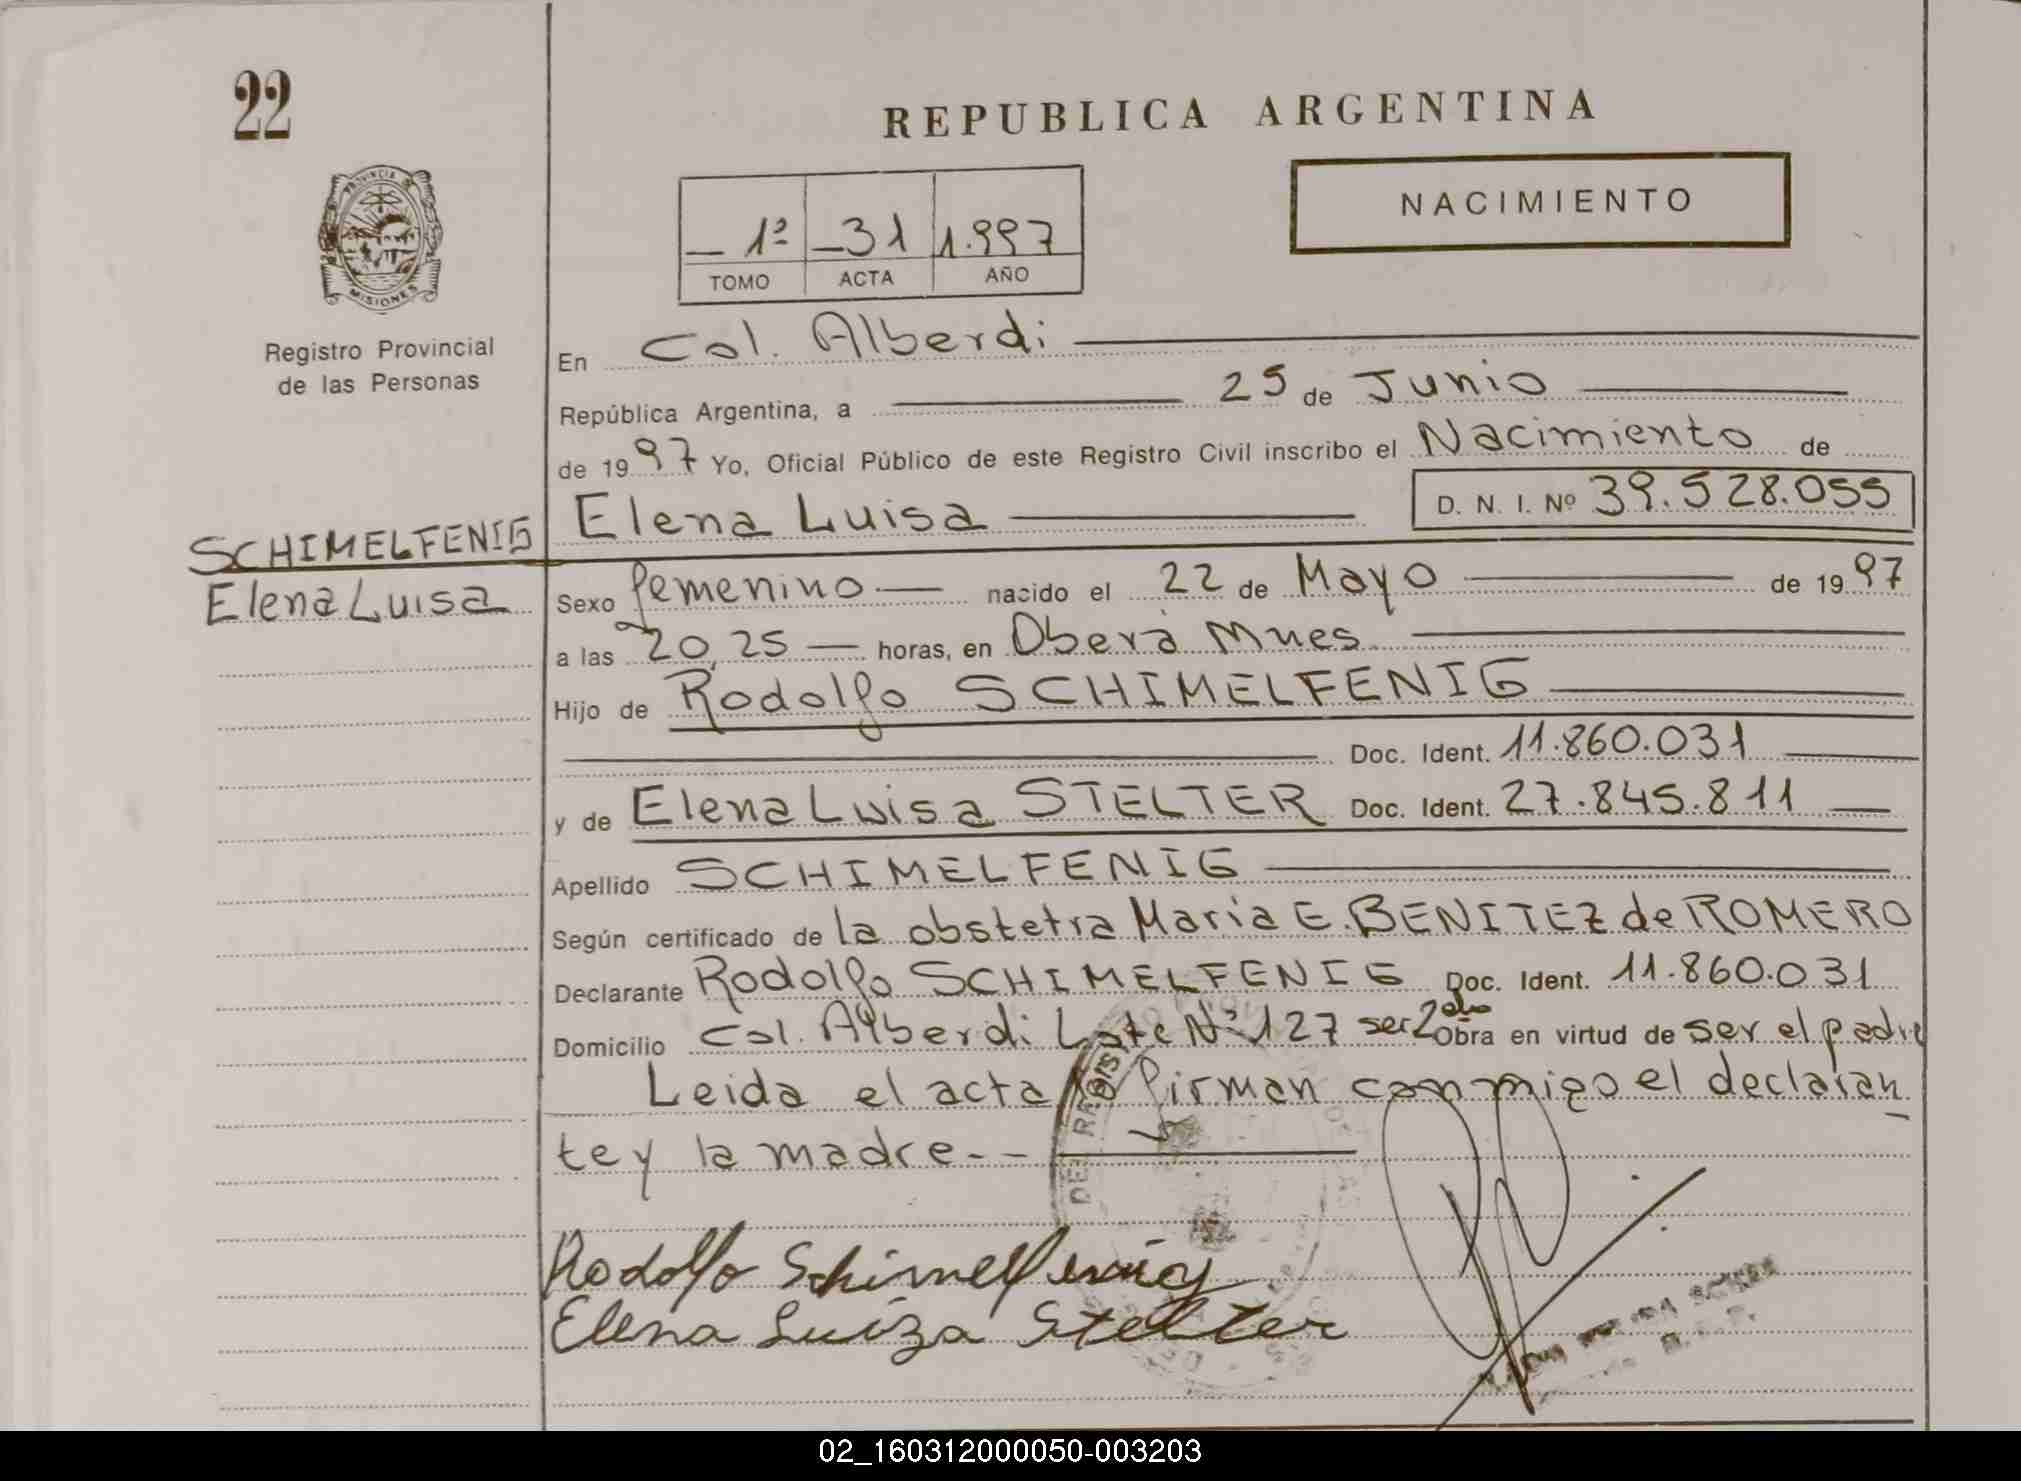 22
REPUBLICA ARGENTINA
NACIMIENTO
1º 31 1.997
TOMO ACTA AÑO
PROVINCIA DE
MISIONES
Registro Provincial
de las Personas
En Col. Alberdi
República Argentina, a 25 de Junio
de 1997 Yo, Oficial Público de este Registro Civil inscribo el Nacimiento de
Elena Luisa D. N. I. Nº 39.528.055
SCHIMELFENIG
Elena Luisa
Sexo femenino nacido el 22 de Mayo de 1997
a las 20,25 horas, en Oberá Mnes.
Hijo de Rodolfo SCHIMELFENIG
Doc. Ident. 11.860.031
y de Elena Luisa STELTER Doc. Ident. 27.845.811
Apellido SCHIMELFENIG
Según certificado de la obstetra Maria E. BENITEZ de ROMERO
Declarante Rodolfo SCHIMELFENIG Doc. Ident. 11.860.031
Domicilio Col. Alberdi Lote Nº 127 Obra en virtud de ser el padre
Leida el acta firman conmigo el declaran
te y la madre.--
Rodolfo Schimelfenig
Elena Luiza Stelter
02_160312000050-003203